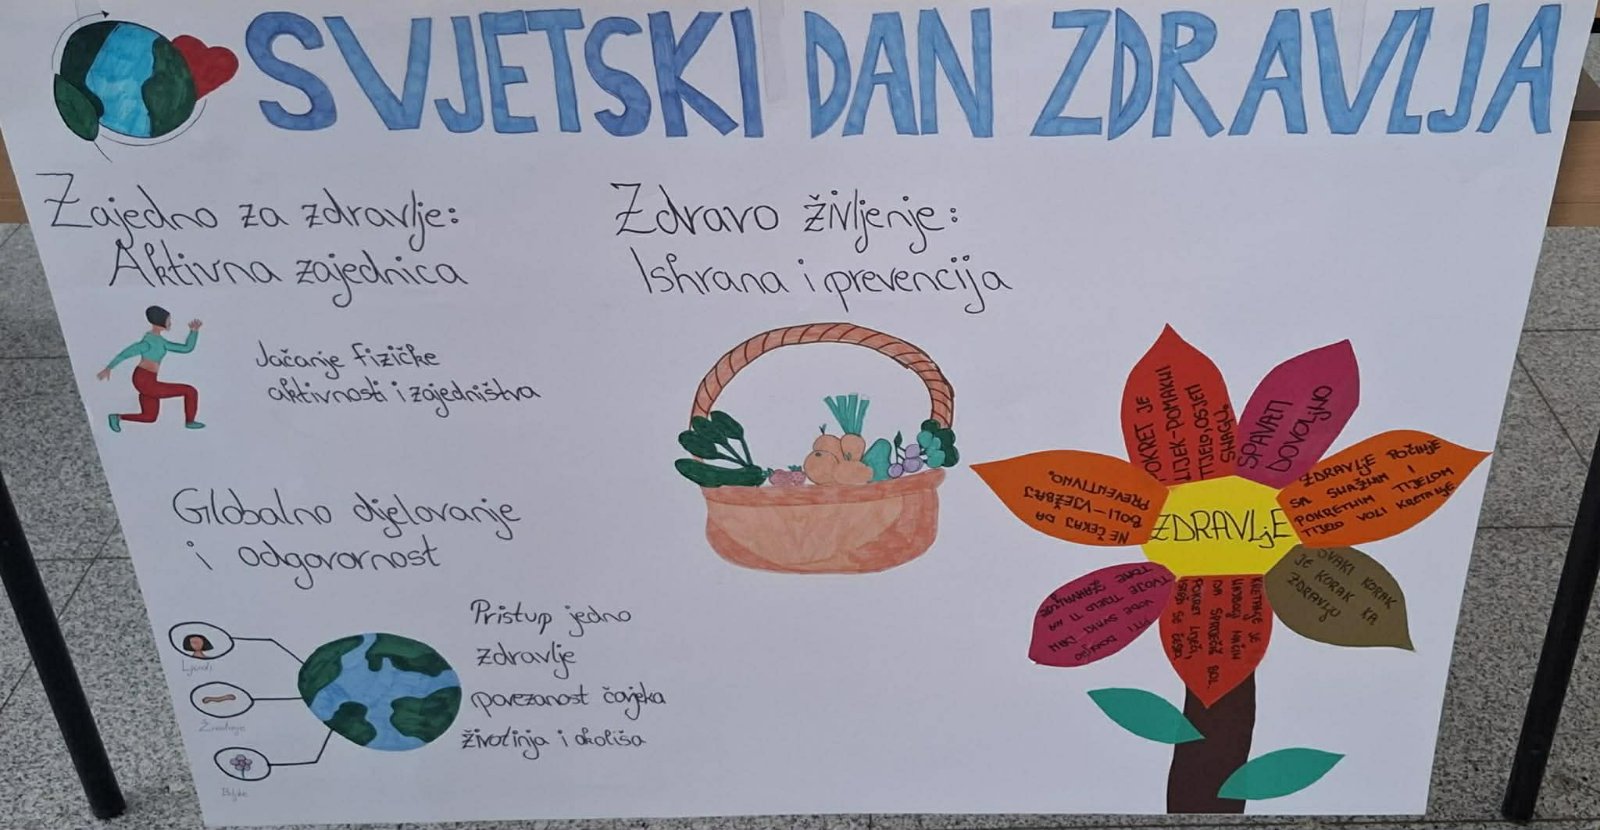 SVJETSKI DAN ZDRAVLJA
Zajedno za zdravlje:
Aktivna zajednica
Jačanje fizičke
aktivnosti i zajedništva
Zdravo življenje:
Ishrana i prevencija
Globalno djelovanje
i odgovornost
Ljudi
Bilјke
Pristup jedno
zdravlje
povezanost čovjeka
životinja i okoliša
POKRET JE
LIJEK-POMAKNI
TIJELO, OSJETI
SNAGU.
SPAVATI
DOVOLJNO
ZDRAVLJE POČINJE
SA SNAŽNIM I
POKRETNIM TIJELOM
TIJELO VOLI KRETANJE
SVAKI KORAK
JE KORAK KA
ZDRAVLJU
KRETANJE JE
NAČIN
DA SPRIJEČIŠ BOL.
PITI DOVOLJNO
VODE SVAKI DAN
TVOJE TIJELO TI NA
TOME ZAHVALJUJE
NE ČEKAJ DA
BOLI-VJEŽBAJ
PREVENTIVNO.
ZDRAVLjE